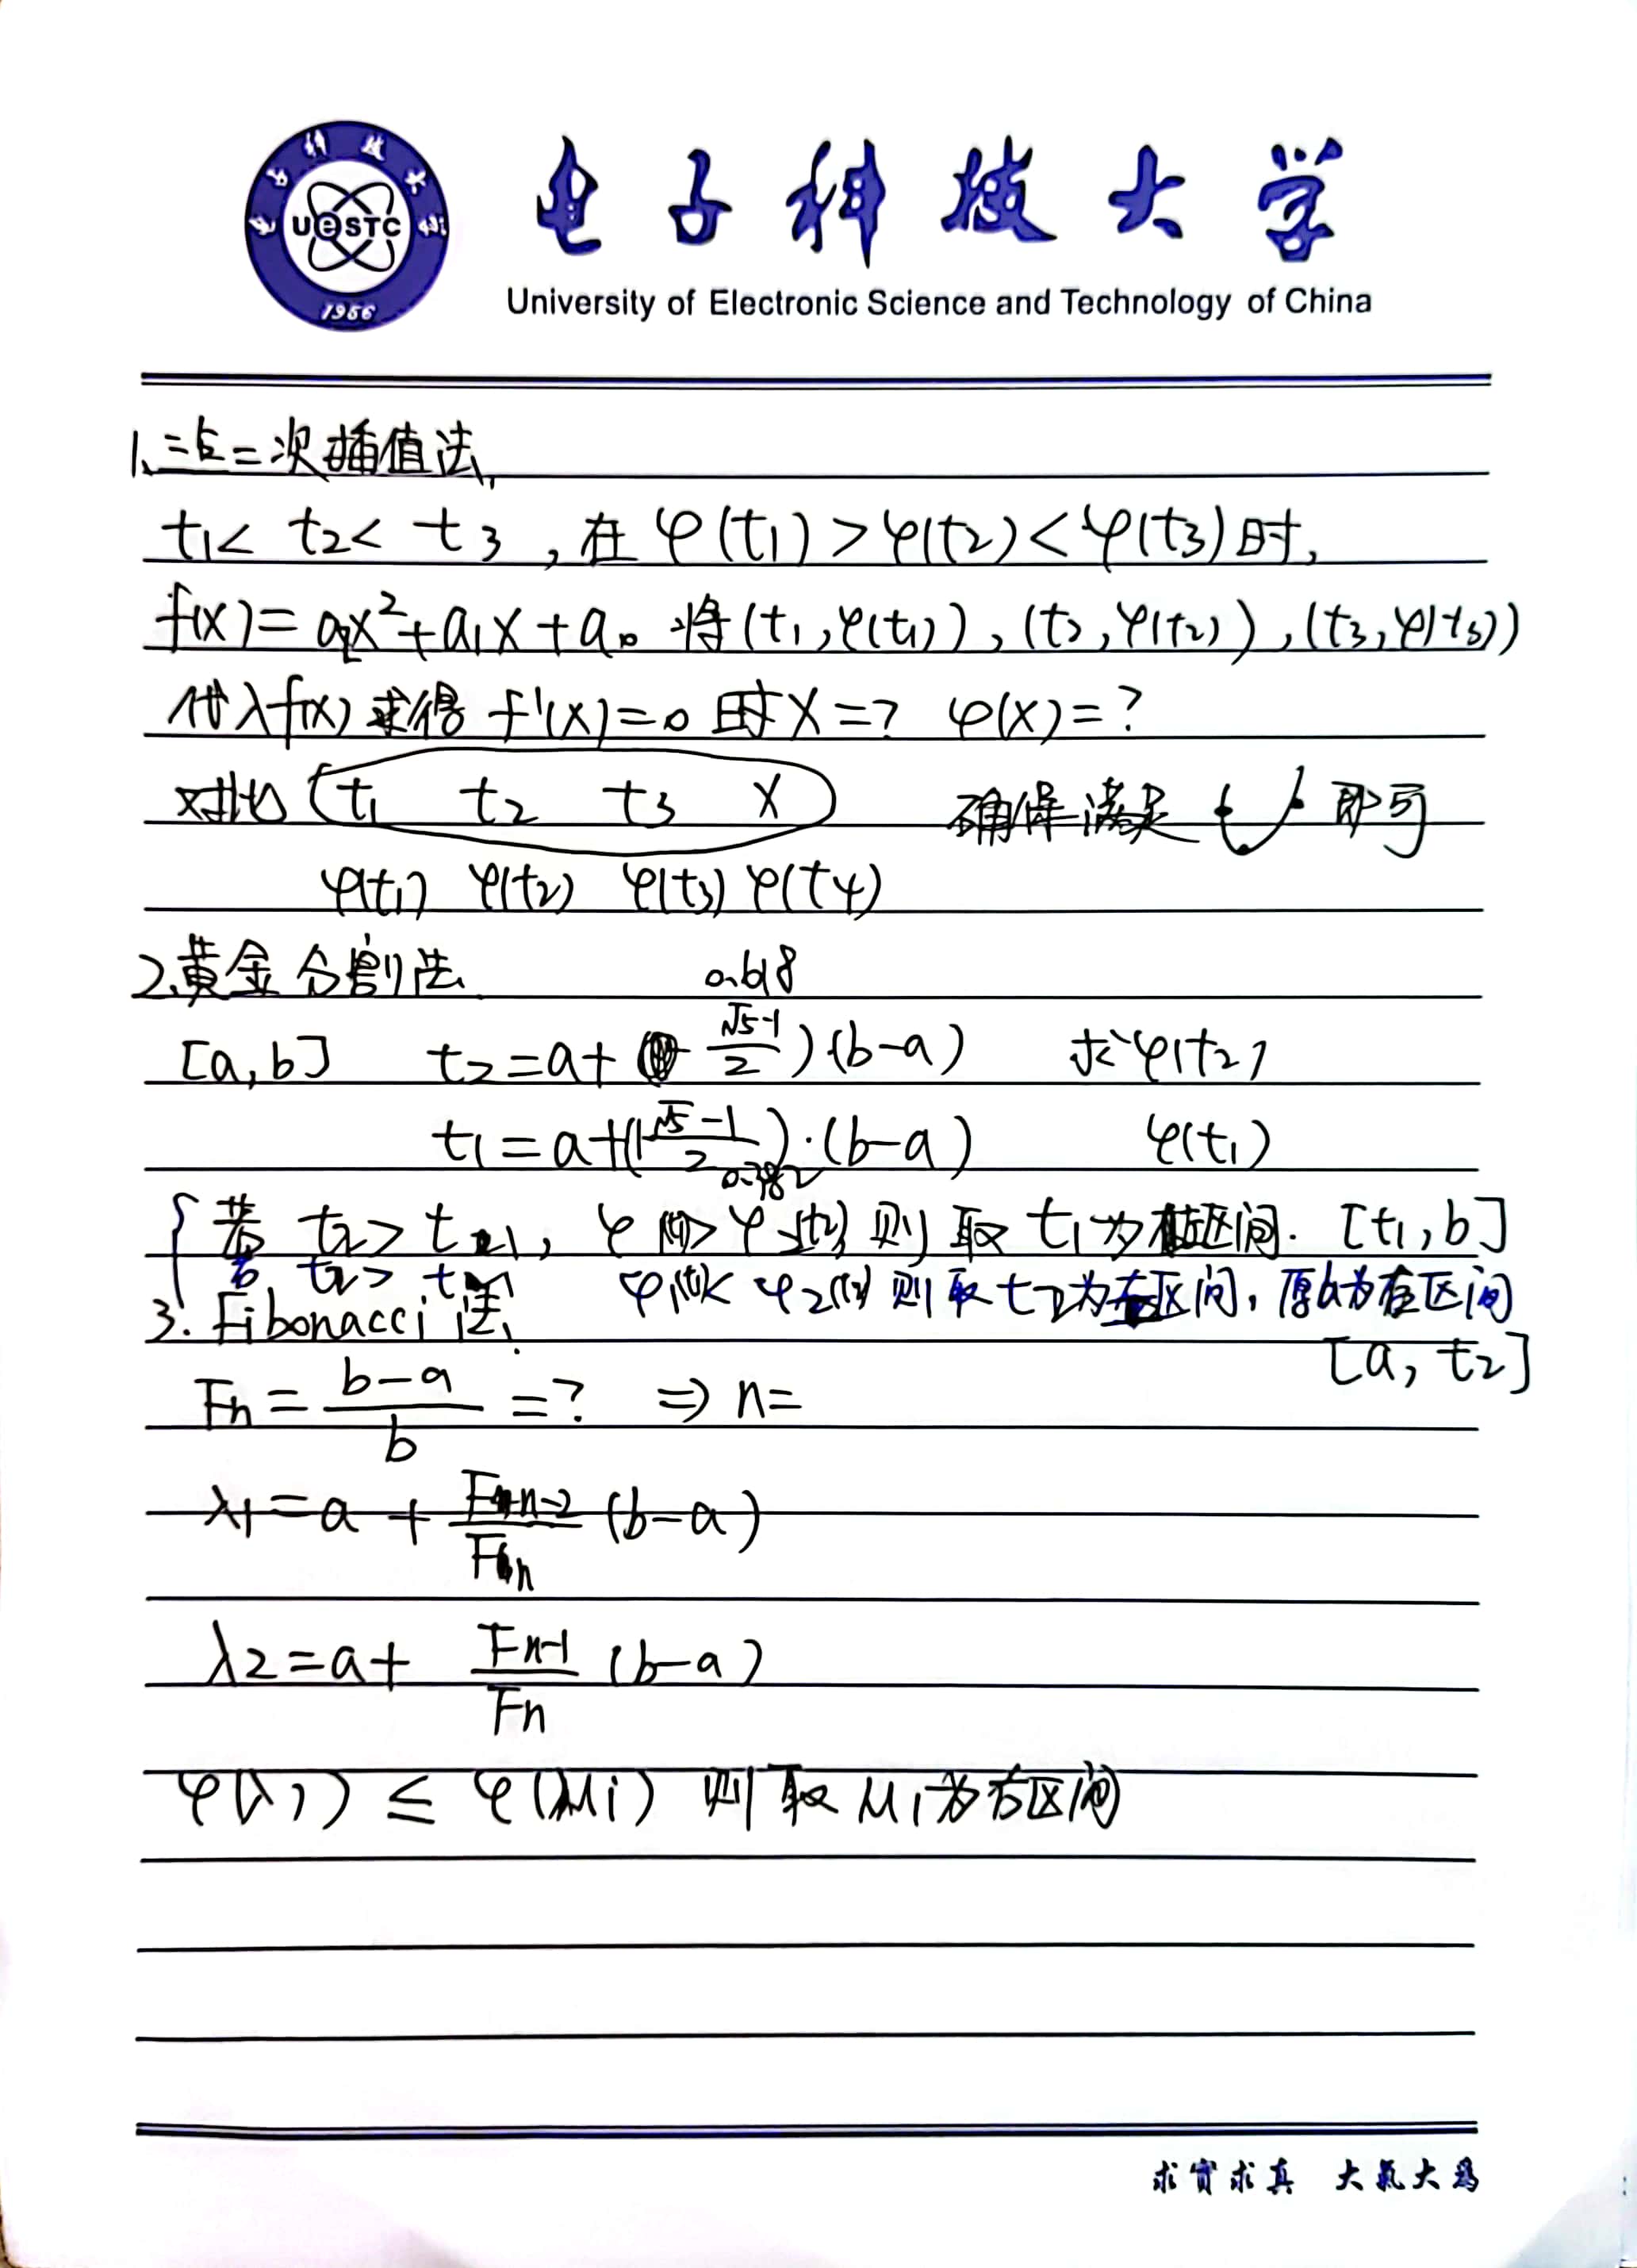 电子科技大学
UeSTC
1956
University of Electronic Science and Technology of China
1、三点二次插值法,
t1< t2< t3 , 在 φ(t1)>φ(t2)<φ(t3)时,
f(x)=a2x²+a1x+a0 将(t1,φ(t1)),(t2,φ(t2)),(t3,φ(t3))
代入f(x)求得 f'(x)=0 时X=? φ(X)=?
对比 (t1 t2 t3 X) 确保满足 即可
φ(t1) φ(t2) φ(t3) φ(t4)
2.黄金分割法 0.618
[a,b] t2=a+ (√5-1)/2)·(b-a) 求φ(t2)
t1=a+(1-(√5-1)/2)·(b-a) φ(t1)
0.382
若 t2> t1, φ (t1)> φ (t2) 则取 t1为左区间. [t1,b]
若 t2> t1 φ1(t1)< φ2(t2) 则取t2为右区间,原a为左区间
3. Fibonacci法: [a, t2]
Fn = (b-a)/b =? ⇒ n=
λ1=a + Fn-2/Fn (b-a)
λ2=a+ Fn-1/Fn (b-a)
φ(λ1) ≤ φ(μ1) 则取μ1为右区间
求实求真 大气大为